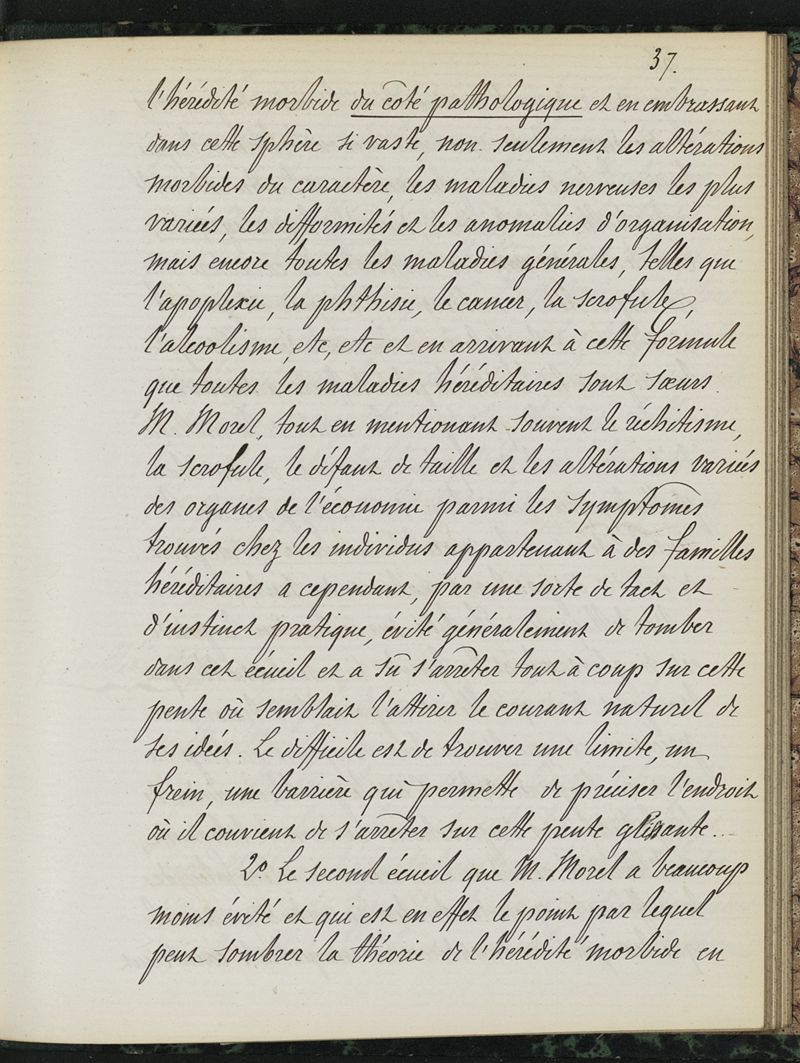 37.
l'hérédité morbide du côté pathologique et en embrassant
dans cette sphère si vaste, non seulement les altérations
morbides du caractère, les maladies nerveuses les plus
variées, les difformités et les anomalies d'organisation,
mais encore toutes les maladies générales, telles que
l'apoplexie, la phthisie, le cancer, la scrofule,
l'alcoolisme, etc, etc et en arrivant à cette formule
que toutes les maladies héréditaires sont sœurs.
M. Morel, tout en mentionant souvent le rachitisme,
la scrofule, le défaut de taille et les altérations variées
des organes de l'économie parmi les symptômes
trouvés chez les individus appartenant à des familles
héréditaires a cependant, par une sorte de tact et
d'instinct pratique, évité généralement de tomber
dans cet écueil et a sû s'arrêter tout à coup sur cette
pente où semblait l'attirer le courant naturel de
ses idées. Le difficile est de trouver une limite, un
frein, une barrière qui permette de préciser l'endroit
où il convient de s'arrêter sur cette pente glissante..
2º. Le second écueil que M. Morel a beaucoup
moins évité et qui est en effet le point par lequel
peut sombrer la théorie de l'hérédité morbide en